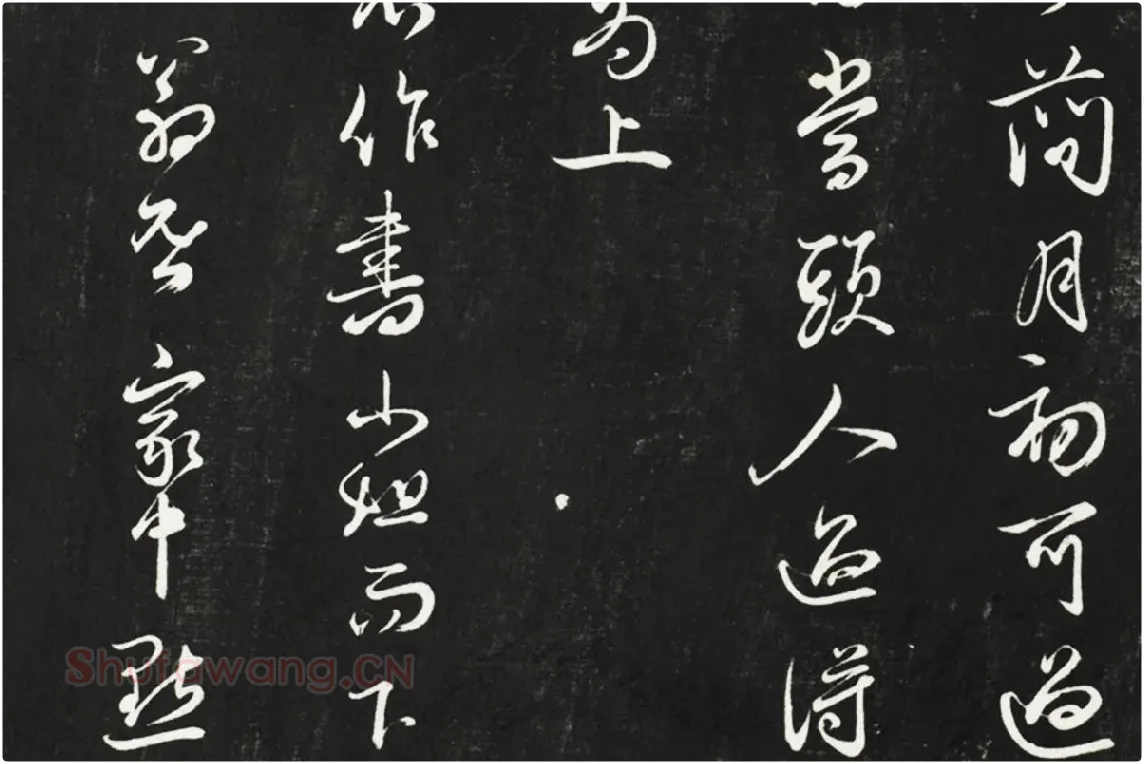 简月初可過
當頭人過得
為上
作書小姐而下
翁 家中點
Shufawang.CN